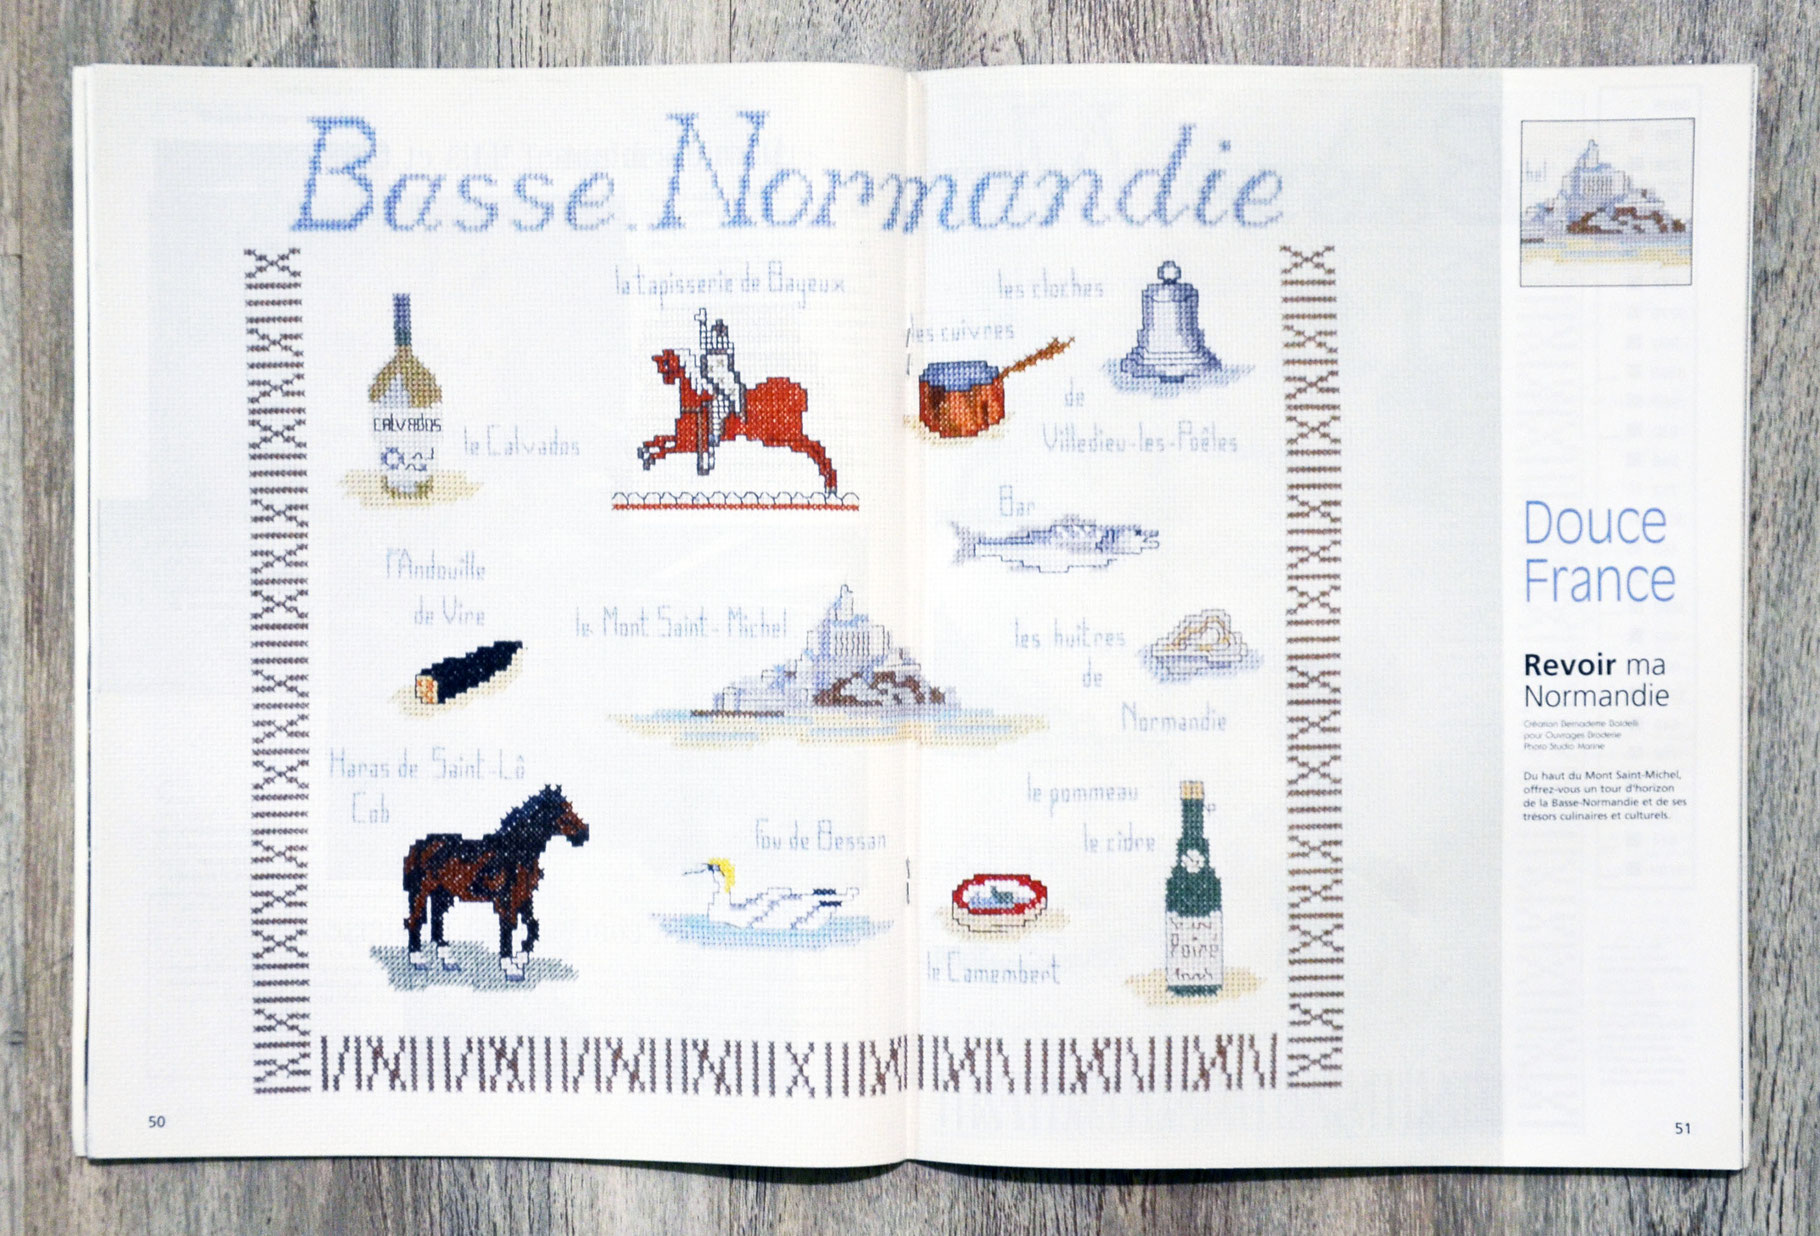 Basse-Normandie
la tapisserie de Bayeux
CALVADOS
le Calvados
l'Andouille
de Vire
le Mont Saint-Michel
Haras de Saint-Lô
Cob
Fou de Bassan
les cloches
les cuivres
de
Villedieu-les-Poêles
Bar
les huîtres
de
Normandie
le pommeau
le cidre
Poiré
le Camembert
50
Douce
France
Revoir ma
Normandie
Création Bernadette Baldelli
pour Ouvrages Broderie
Photo Studio Marine
Du haut du Mont Saint-Michel,
offrez-vous un tour d'horizon
de la Basse-Normandie et de ses
trésors culinaires et culturels.
51